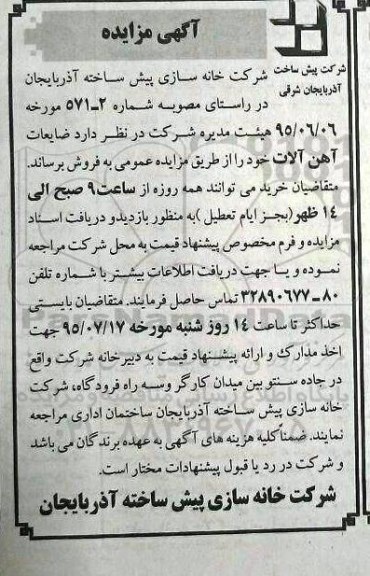 آگهی مزایده
شرکت پیش ساخت
آذربایجان شرقی
شرکت خانه سازی پیش ساخته آذربایجان
در راستای مصوبه شماره ۲ـ۵۷۱ مورخه
۹۵/۰۶/۰۶ هیئت مدیره شرکت در نظر دارد ضایعات
آهن آلات خود را از طریق مزایده عمومی به فروش برساند.
متقاضیان خرید می توانند همه روزه از ساعت۹ صبح الی
۱۴ ظهر(بجز ایام تعطیل )به منظور بازدیدو دریافت اسناد
مزایده و فرم مخصوص پیشنهاد قیمت به محل شرکت مراجعه
نموده و یا جهت دریافت اطلاعات بیشتر با شماره تلفن
۸۰ـ۳۲۸۹۰۶۷۷ تماس حاصل فرمایند. متقاضیان بایستی
حداکثر تا ساعت ۱۴ روز شنبه مورخه ۹۵/۰۷/۱۷ جهت
اخذ مدارک و ارائه پیشنهاد قیمت به دبیرخانه شرکت واقع
در جاده سنتو بین میدان کارگر وسه راه فرودگاه، شرکت
خانه سازی پیش ساخته آذربایجان ساختمان اداری مراجعه
نمایند. ضمناًکلیه هزینه های آگهی به عهده برندگان می باشد
و شرکت در رد یا قبول پیشنهادات مختار است.
شرکت خانه سازی پیش ساخته آذربایجان